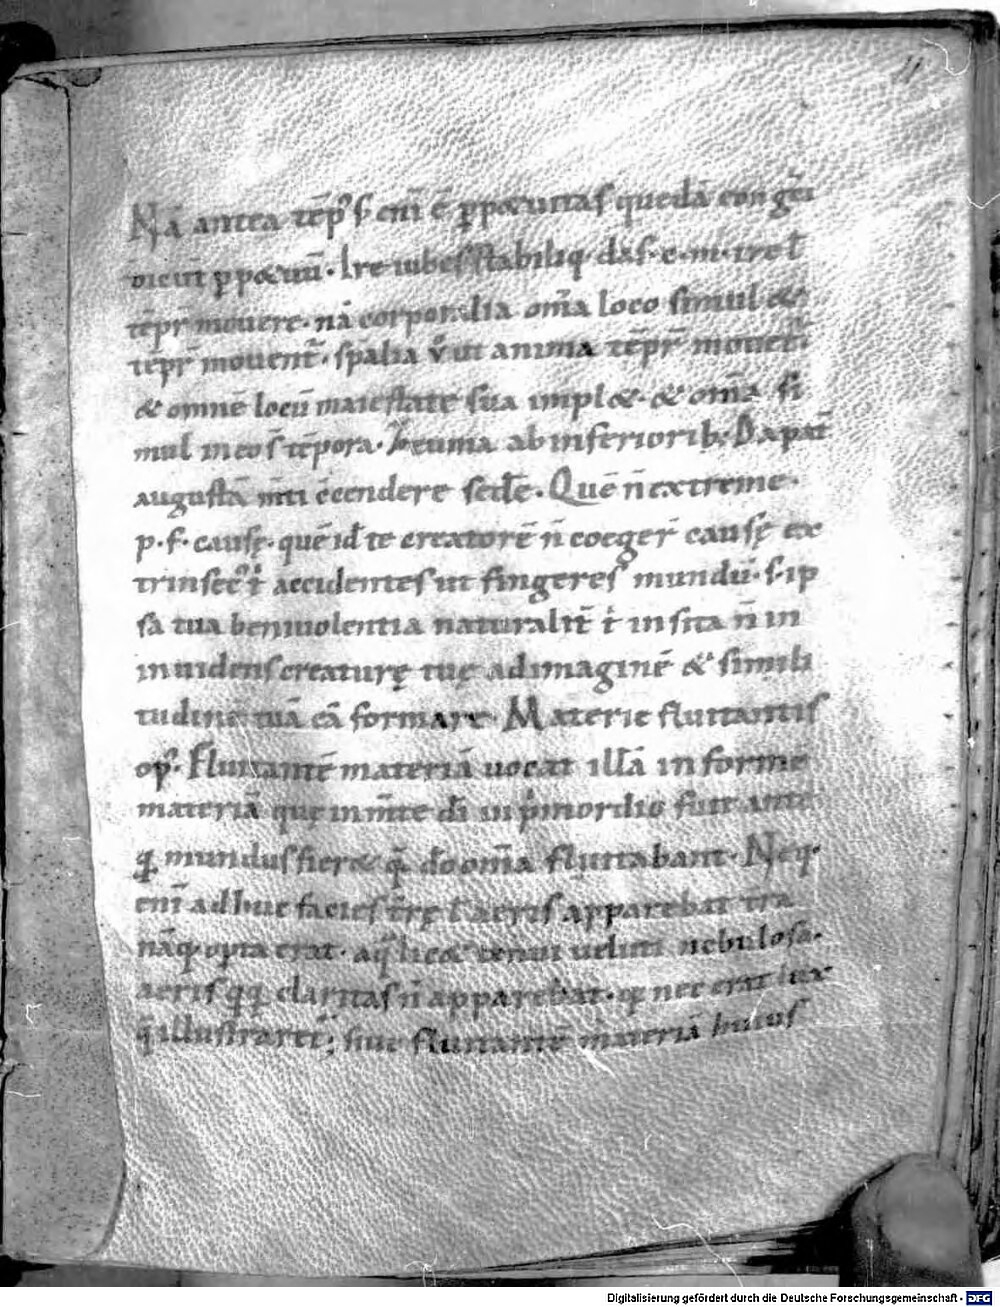 11
Nā antea tēp⁹ ſ enī ē ꝑpetuitaſ quedā con gēi
dicun̄t ꝑpetuū · Ire iubeſ ſtabiliq; daſ · c · m · ire ł
tēpr̄ mouere · nā corporalia om̄a loco ſimul &
tēpr̄ mouent̄ · ſp̄alia v̄ ut anima tēpr̄ mouet̄ ·
& omnē locū maieſtate ſua implet · & om̄a ſi
mul in eo ſt̄ tēpora · Iecuma ab inferiorib; Da pat̄
auguſtā m̄ti c̄cendere ſedē · Quē n̄ extreme ·
p · f · cauſę · quē id ē te creatorē n̄ coeger̄ cauſę ex
trinſec⁹ ł accidenteſ ut fingereſ mundū · ſ · ip
ſa tua beniuolentia naturalit̄ ti inſita n̄ in
inuidenſ creaturę tuę ad imaginē & ſimili
tudinē tuā eā formare · Materie fluitantiſ
opꝰ · Fluitantē materiā uocat illā informē
materiā quę in m̄te dī in p̄mordio fuit ante
quā munduſ fieret quā do om̄a fluitabant · Neq;
enī adhuc facieſ t̄rę ł aeriſ apparebat t̄ra
nāq; opta erat · aq̄ licet tenui uelut nebuloſa ·
aeriſ qq; claritaſ n̄ apparebat · quia nec erat lux
q̄ illuſtraret̄; ſiue fluitantē materiā huiuſ
Digitalisierung gefördert durch die Deutsche Forschungsgemeinschaft - DFG